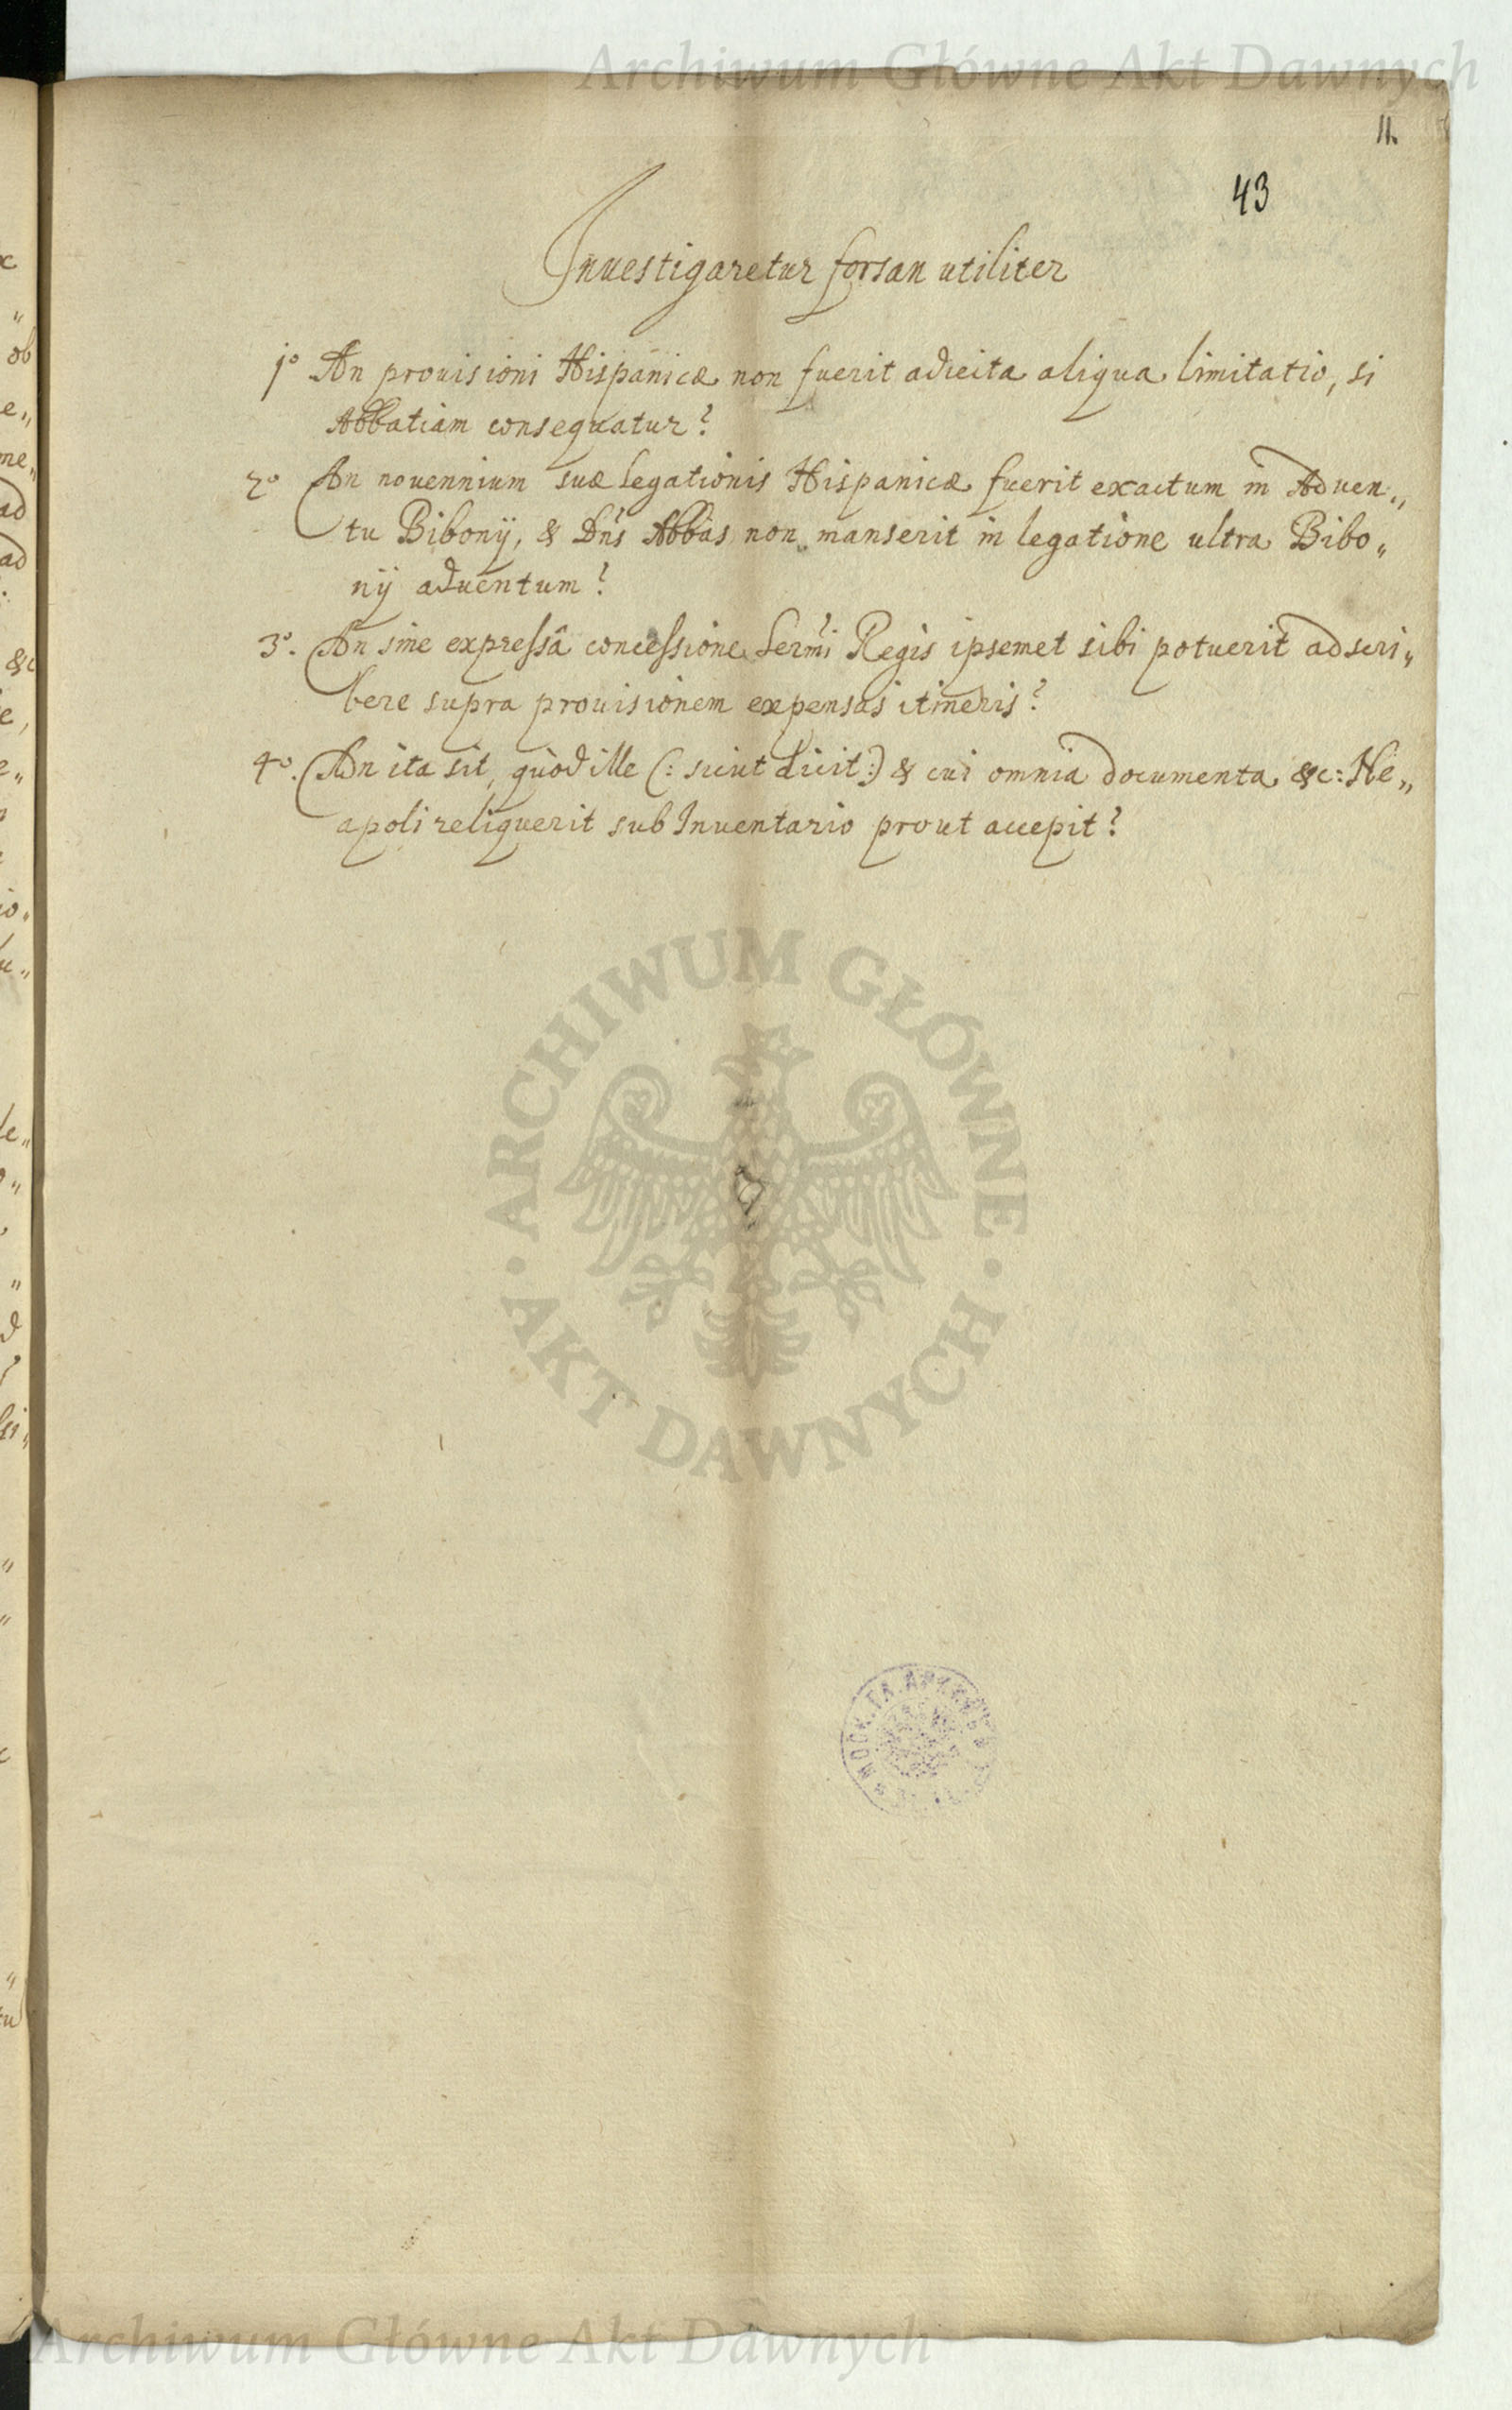 Archiwum Główne Akt Dawnych
11.
43
Inuestigaretur forsan utiliter
1º An prouisioni Hispanicæ non fuerit adiecta aliqua limitatio, si
Abbatiam consequatur?
2º An nouennium suæ legationis Hispanicæ fuerit exactum in Aduen„
tu Bibonÿ, & Dn̄s Abbas non manserit in legatione ultra Bibo„
nÿ aduentum?
3º. An sine expressâ concessione Sermi Regis ipsemet sibi potuerit adscri„
bere supra prouisionem expensas itineris?
4º. An ita sit, quod ille (: sicut dicit :) & cui omnia documenta &c: Ne„
apoli reliquerit sub Inuentario prout accepit?
ARCHIWUM GŁÓWNE
AKT DAWNYCH
Archiwum Główne Akt Dawnych